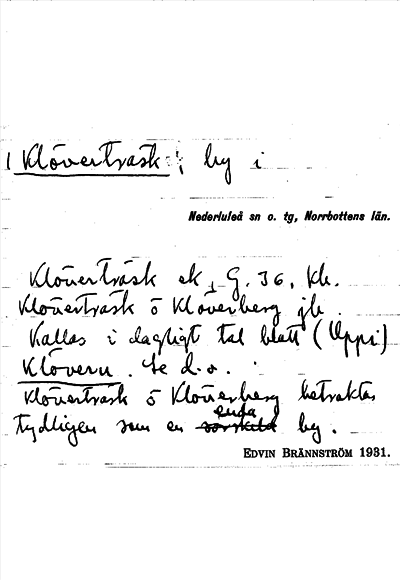 1 Klöverträsk; by i
Nederluleå sn o. tg, Norrbottens län.
Klöverträsk ek, G. 36, kh.
Klöverträsk o Klöverberg jb.
Kallas i dagligt tal blott (Uppi)
Klövern. Se d.o.
Klöverträsk o Klöverberg betraktas
enda
tydligen som en särskild by.
EDVIN BRÄNNSTRÖM 1931.